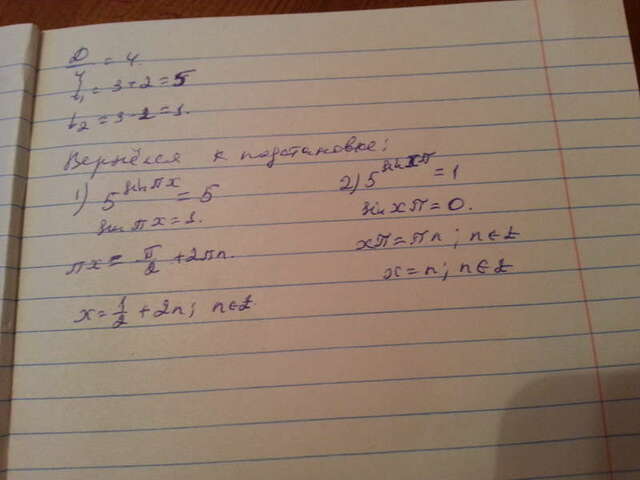 D/4 = 4.
t₁ = 3+2 = 5
t₂ = 3-2 = 1.
Вернёмся к подстановке:
1) 5^(sin πx) = 5
sin πx = 1.
πx = π/2 + 2πn.
x = 1/2 + 2n; n∈Z
2) 5^(sin xπ) = 1
sin xπ = 0.
xπ = πn; n∈Z
x = n; n∈Z